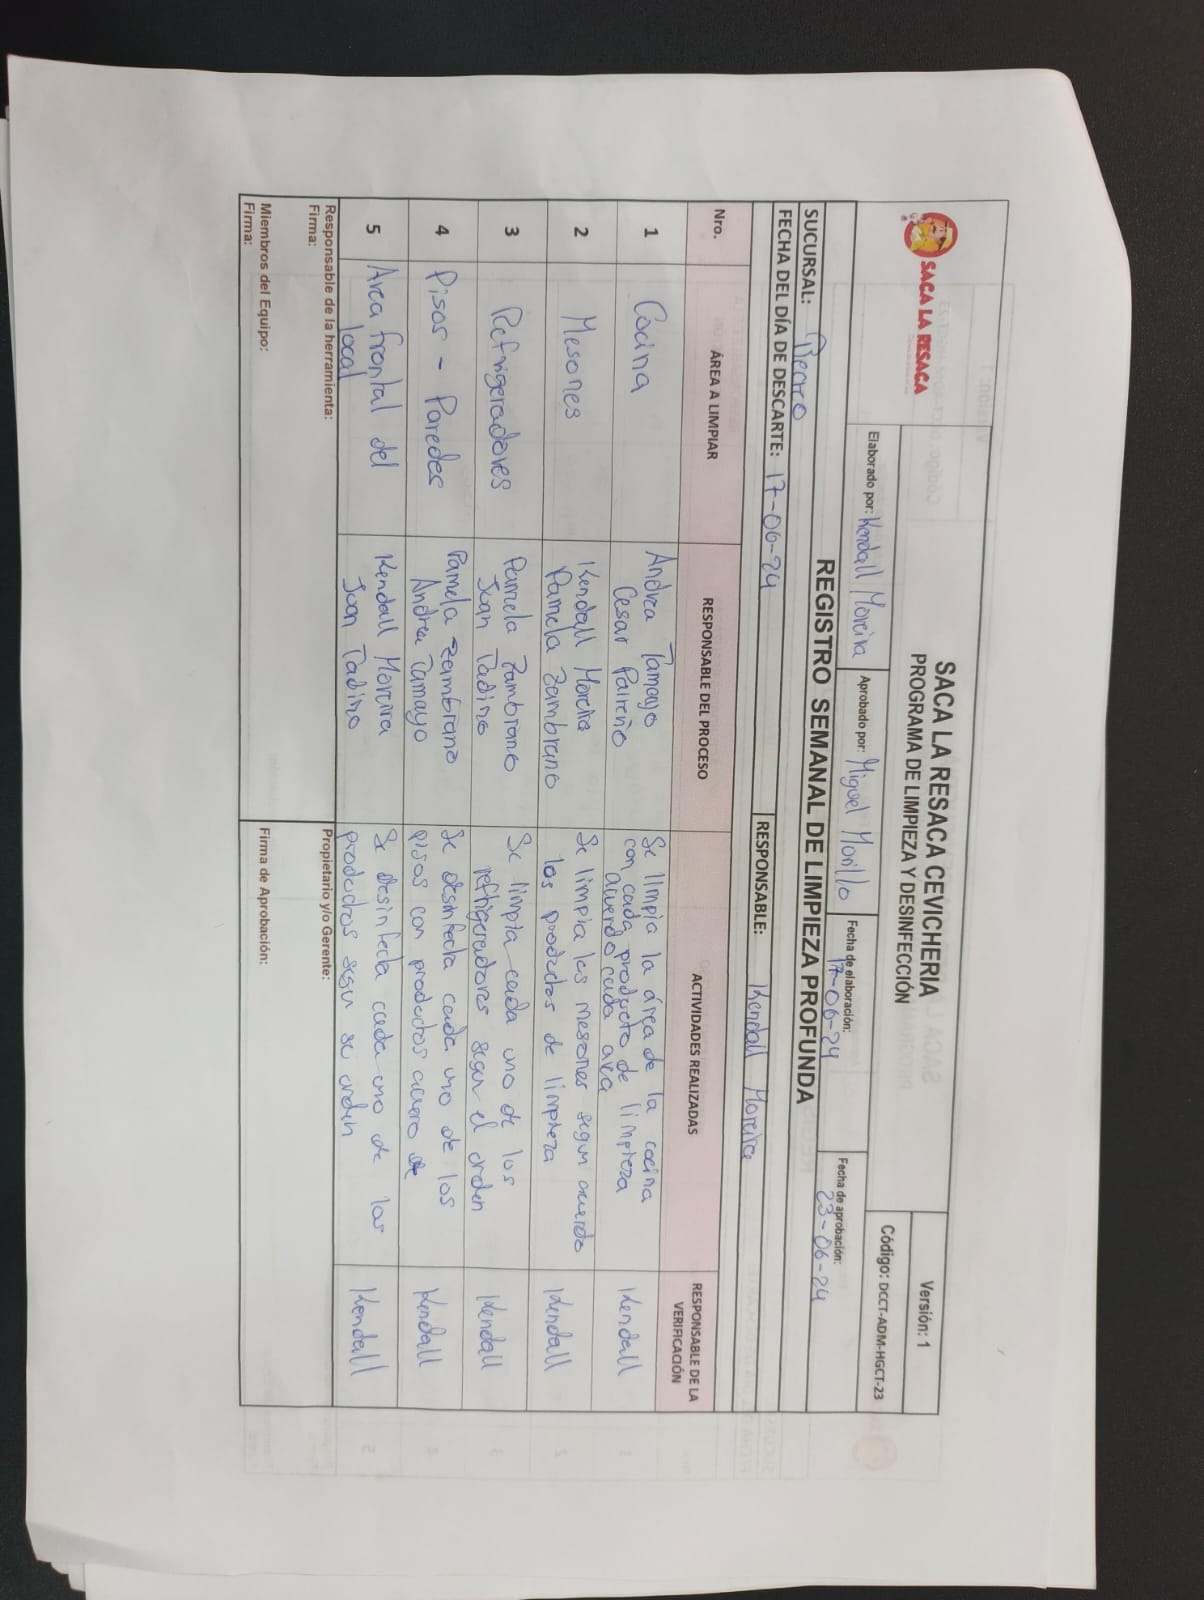 SACA LA RESACA
SACA LA RESACA CEVICHERIA
PROGRAMA DE LIMPIEZA Y DESINFECCIÓN
Versión: 1
Código: DCCT-ADM-HGCT-23
Elaborado por: Kendall Moreira
Aprobado por: Miguel Morillo
Fecha de elaboración:
17-06-24
Fecha de aprobación:
23-06-24
REGISTRO SEMANAL DE LIMPIEZA PROFUNDA
SUCURSAL:
FECHA DEL DÍA DE DESCARTE: 17-06-24
RESPONSABLE: Kendall Moreira
Nro.
ÁREA A LIMPIAR
RESPONSABLE DEL PROCESO
ACTIVIDADES REALIZADAS
RESPONSABLE DE LA
VERIFICACIÓN
1
Cocina
Andrea Tamayo
Cesar
Se limpia la área de la cocina
con cada producto de limpieza
acuerdo cada area
Kendall
2
Mesones
Kendall Moreira
Pamela Zambrano
Se limpia los mesones segun acuerdo
los productos de limpieza
Kendall
3
Refrigeradores
Pamela Zambrano
Juan Tadino
Se limpia cada uno de los
refrigeradores segun el orden
Kendall
4
Pisos - Paredes
Pamela Zambrano
Andrea Tamayo
Se desinfecta cada uno de los
pisos con productos
Kendall
5
Area frontal del
local
Kendall Moreira
Juan Tadino
Se desinfecta cada uno de los
productos segun su orden
Kendall
Responsable de la herramienta:
Firma:
Propietario y/o Gerente:
Miembros del Equipo:
Firma:
Firma de Aprobación: